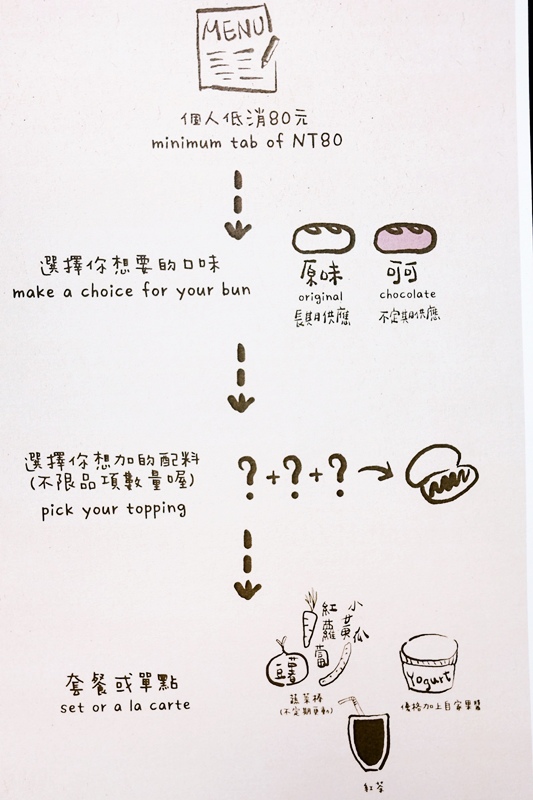 MENU
個人低消80元
minimum tab of NT80
選擇你想要的口味
make a choice for your bun
原味
original
長期供應
可可
chocolate
不定期供應
選擇你想加的配料
(不限品項數量喔)
pick your topping
? + ? + ?
套餐或單點
set or a la carte
紅蘿蔔
小黃瓜
豆薯
蔬菜棒
(不定期更動)
Yogurt
優格加上自家果醬
紅茶